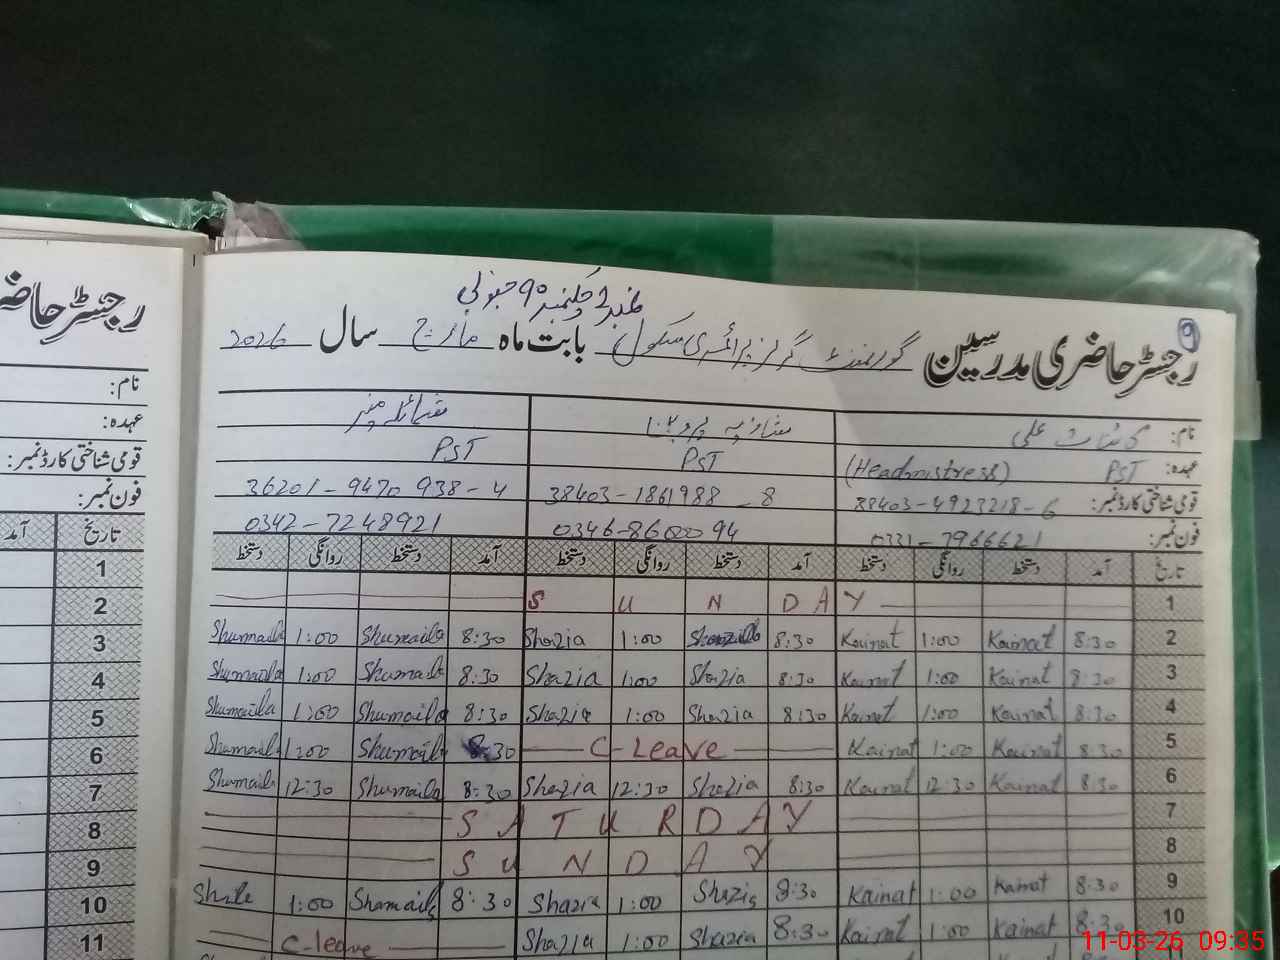 رجسٹر حاضری مدرسین گورنمنٹ گرلز پرائمری سکول بابت ماہ مارچ سال 2026
نام: کائنات علی شازیہ پروین شمائلہ منیر
عہدہ: PST (Headmistress) PST PST
قومی شناختی کارڈ نمبر: 38403-4923218-6 38403-1861988-8 36201-9470938-4
فون نمبر: 0331-7966621 0346-8600094 0342-7248921
تاریخ آمد دستخط روانگی دستخط آمد دستخط روانگی دستخط آمد دستخط روانگی دستخط
1 SUNDAY
2 8:30 Kainat 1:00 Kainat 8:30 Shazia 1:00 Shazia 8:30 Shumaila 1:00 Shumaila
3 8:30 Kainat 1:00 Kainat 8:30 Shazia 1:00 Shazia 8:30 Shumaila 1:00 Shumaila
4 8:30 Kainat 1:00 Kainat 8:30 Shazia 1:00 Shazia 8:30 Shumaila 1:00 Shumaila
5 8:30 Kainat 1:00 Kainat C-Leave 8:30 Shumaila 1:00 Shumaila
6 8:30 Kainat 12:30 Kainat 8:30 Shazia 12:30 Shazia 8:30 Shumaila 12:30 Shumaila
7 SATURDAY
8 SUNDAY
9 8:30 Kainat 1:00 Kainat 8:30 Shazia 1:00 Shazia 8:30 Shamaila 1:00
10 8:30 Kainat 1:00 Kainat 8:30 Shazia 1:00 Shazia C-leave
رجسٹر حاضر
نام:
عہدہ:
قومی شناختی کارڈ نمبر:
فون نمبر:
تاریخ آمد
1
2
3
4
5
6
7
8
9
10
11
11-03-26 09:35